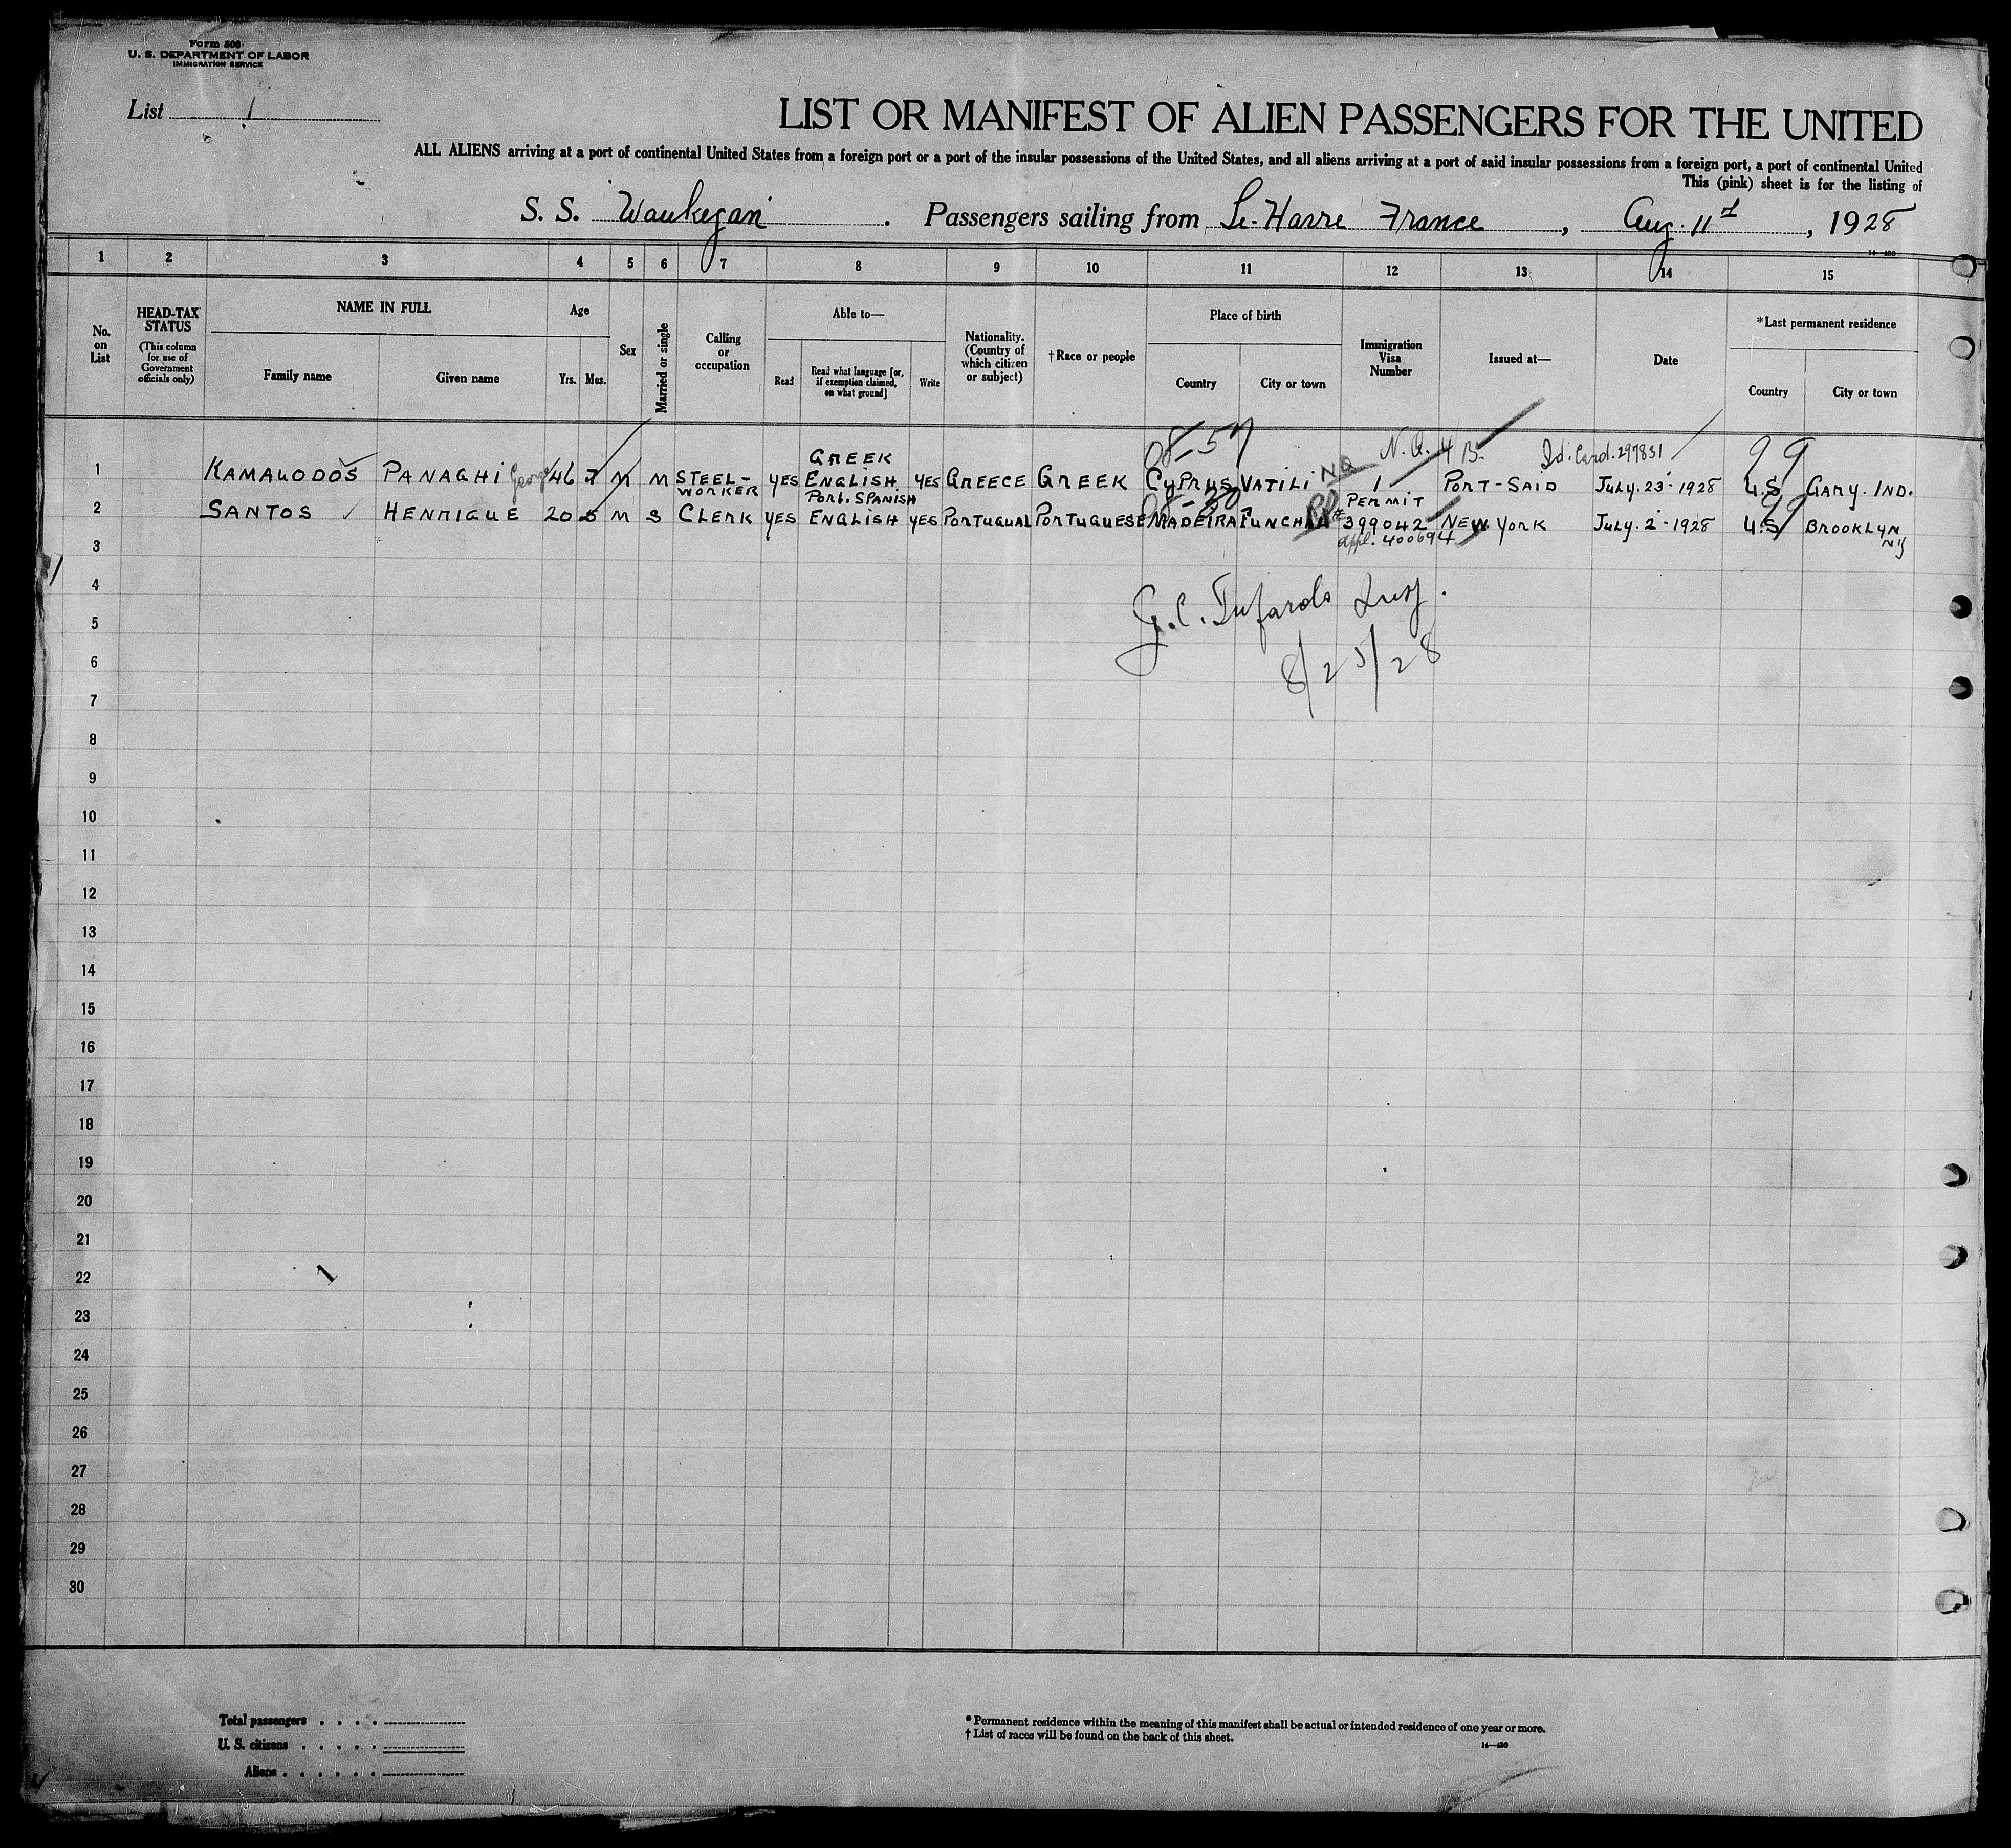 Form 500
U. S. DEPARTMENT OF LABOR
IMMIGRATION SERVICE
List 1
LIST OR MANIFEST OF ALIEN PASSENGERS FOR THE UNITED
ALL ALIENS arriving at a port of continental United States from a foreign port or a port of the insular possessions of the United States, and all aliens arriving at a port of said insular possessions from a foreign port, a port of continental United
This (pink) sheet is for the listing of
S. S. Waukegan . Passengers sailing from Le-Havre France , Aug. 11 , 1928
14—430
1 2 3 4 5 6 7 8 9 10 11 12 13 14 15
No. on List
HEAD-TAX STATUS (This column for use of Government officials only)
NAME IN FULL
Family name
Given name
Age
Yrs. Mos.
Sex
Married or single
Calling or occupation
Able to—
Read
Read what language [or, if exemption claimed, on what ground]
Write
Nationality. (Country of which citizen or subject)
†Race or people
Place of birth
Country
City or town
Immigration Visa Number
Issued at—
Date
*Last permanent residence
Country
City or town
08-57 N.Q. 4 B. Id. Card. 297851 99
1 KAMALODOS PANAGHI George 46 7 M M STEEL-WORKER YES GREEK ENGLISH YES GREECE GREEK CYPRUS VATILI NQ 1 PORT-SAID JULY. 23-1928 U.S GARY. IND.
2 SANTOS HENRIQUE 20 5 M S CLERK YES PORT. SPANISH ENGLISH YES PORTUGUAL PORTUGUESE MADEIRA FUNCHAL PERMIT #399042 NEW YORK JULY. 2-1928 U.S BROOKLYN NY
3 appl. 400694
4
5
6 8/25/28
7
8
9
10
11
12
13
14
15
16
17
18
19
20
21
22
23
24
25
26
27
28
29
30
Total passengers . . . .
U. S. citizens . . . . .
Aliens . . . . . .
* Permanent residence within the meaning of this manifest shall be actual or intended residence of one year or more.
† List of races will be found on the back of this sheet.
14—430